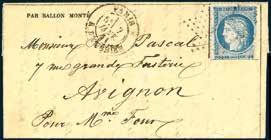 PAR BALLON MONTÉ
PARIS
Monsieur Pascal
7 rue grande Fusterie
Avignon
Pour Mme Four